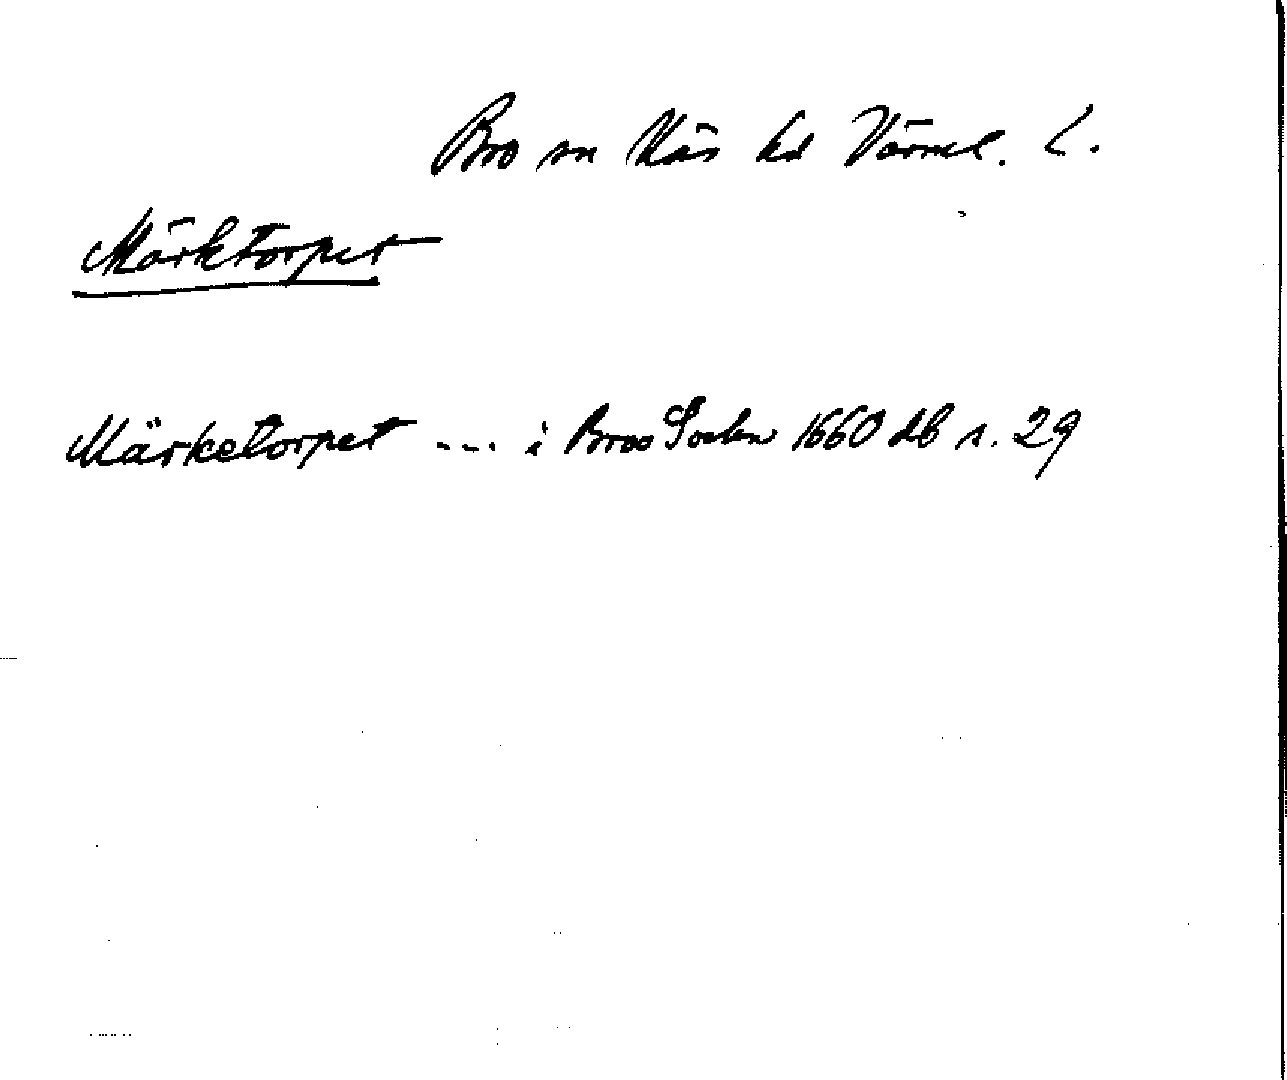 Bro sn Näs hd Värml. l.
Märktorpet
Märketorpet --- i Broo Sochn 1660 db s. 29